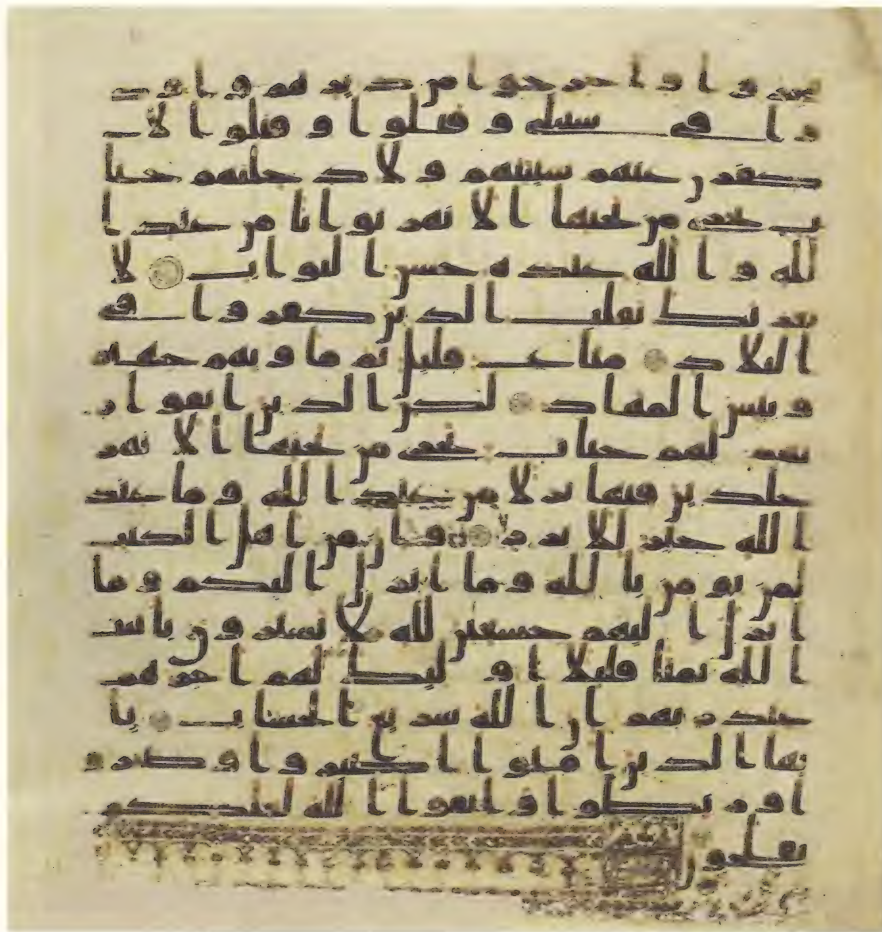 جروا واخرجوا من ديرهم واوذ
وا في سبيلي وقتلوا وقتلوا لا
كفرن عنهم سيتهم ولادخلنهم جنا
ت تجري من تحتها الانهر ثوابا من عند ا
لله والله عنده حسن الثواب لا
يغرنك تقلب الذين كفروا في
البلاد متع قليل ثم ماويهم جهنم
وبيس المهاد لكن الذين اتقوا ر
بهم لهم جنات تجري من تحتها الانهر
خلدين فيها نزلا من عند الله وما عند
الله خير للابرار وان من اهل الكتب
لمن يومن بالله وما انزل اليكم وما
انزل اليهم خشعين لله لا يشترون بايت
الله ثمنا قليلا اوليك لهم اجرهم
عند ربهم ان الله سريع الحساب يا
يها الذين امنوا اصبروا وصبرو
ا وربطوا واتقوا الله لعلكم
تفلحون